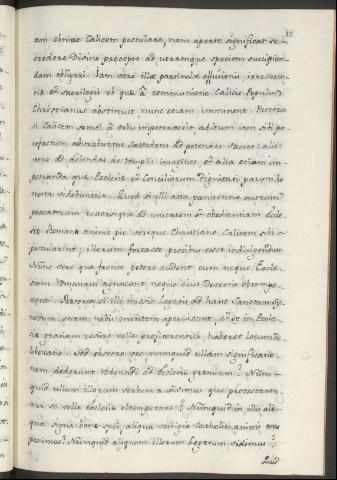 57
am obnixe Calicem postulare, nam aperte significat se
credere Divino praecepto ad utramque speciem suscipien-
dam obligari. Iam vero illa pericula effusionis, irreveren-
tiae et sacrilegii ob quae à communione Calicis Populus
Christianus abstinuit, nunc etiam imminent. Praeterea
si Calicem semel à vobis impetraverint aditum iam sibi pa-
tefactum arbitrabuntur Sacerdotum ad petenda
vero ad delendas de templis imagines, et alia etiam im-
petranda quae Ecclesiae et Conciliorum dignitati parum ho-
nesta videbuntur. Quod si illi acta paenitentia suorum
peccatorum reversique ad unitatem et obedientiam Eccle-
siae Romanae animo pio verique Christiano Calicem sibi
postularent, illorum fortasse precibus esset indulgendum
Nunc vero qua fronte petere audent cum neque Eccle-
siam Romanam agnoscant neque eius Decretis obtempe-
rent. Praeterea si illi missis Legatis ad hanc Sanctam Sy-
nodum, suam nobis mentem aperuissent, et se in Eccle-
siae gratiam redire velle profiterentur, haberet locum de-
liberatio. Sed obsecro vos numquid ullam significatio-
nem dederunt redeundi ad Ecclesiae gremium? Num-
quid ullum illorum verbum audivimus quo protestaren-
tur se velle Ecclesiae obtemperare? Numquid in illis ali-
qua signa bonae spei, aliqua vestigia Catholici animi com-
perimus? Numquid aliquem illorum Legatum vidimus?
Quid